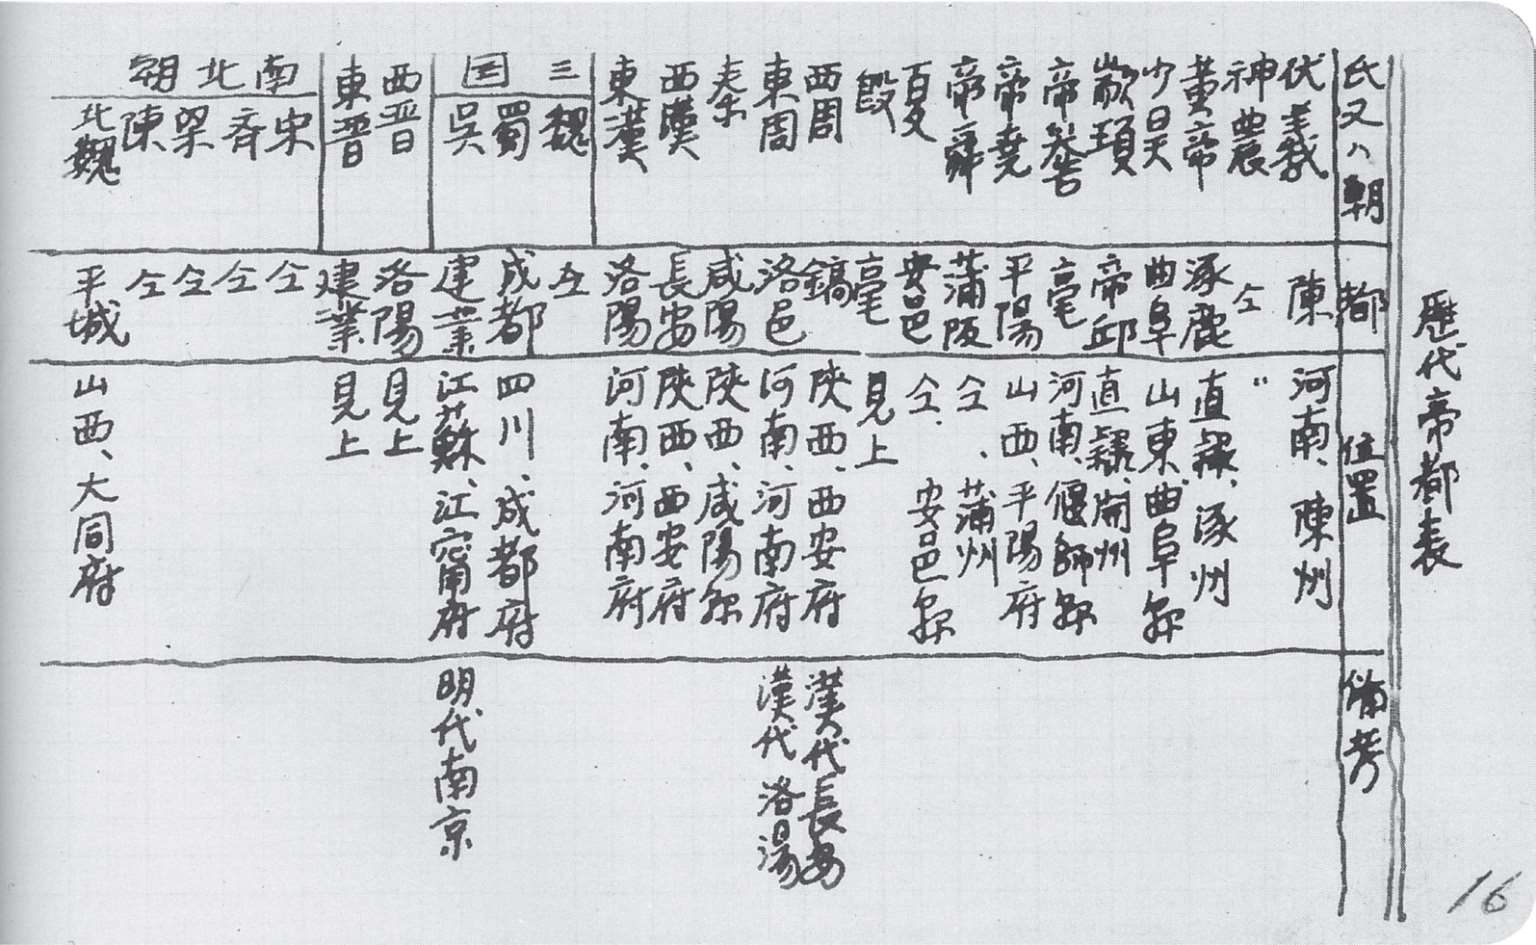 歴代帝都表
氏又ハ朝 都 位置 備考
伏羲 陳 河南、陳州
神農 仝 〃
黄帝 涿鹿 直隷、涿州
少昊 曲阜 山東、曲阜縣
顓頊 帝邱 直隷、開州
帝嚳 亳 河南、偃師縣
帝堯 平陽 山西、平陽府
帝舜 蒲阪 仝、蒲州
夏 安邑 仝、安邑縣
殷 亳 見上
西周 鎬 陝西、西安府 漢代長安
東周 洛邑 河南、河南府 漢代洛陽
秦 咸陽 陝西、咸陽縣
西漢 長安 陝西、西安府
東漢 洛陽 河南、河南府
三国
魏 仝
蜀 成都 四川、成都府
呉 建業 江蘇、江甯府 明代南京
西晋 洛陽 見上
東晋 建業 見上
南北朝
宋 仝
斉 仝
梁 仝
陳 仝
北魏 平城 山西、大同府
16